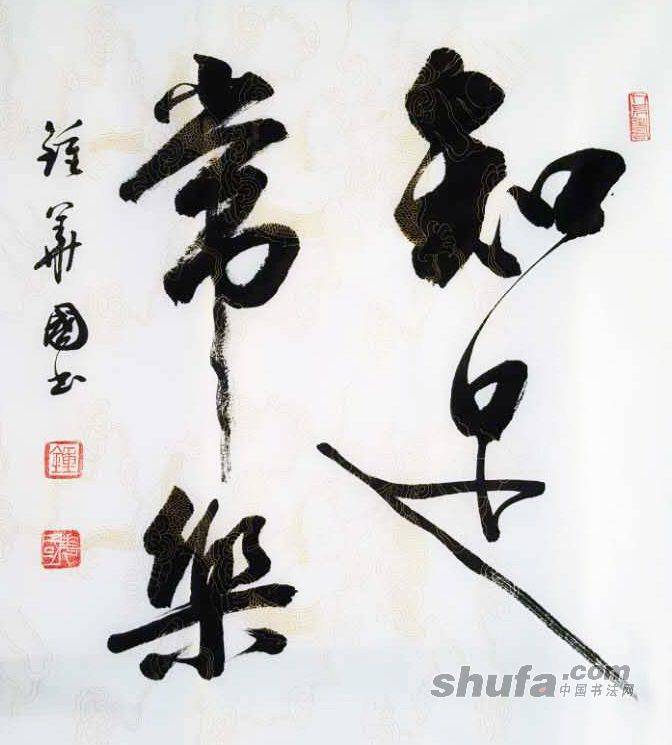 知足
常樂
鍾華國书
鍾
shufa.com
中国书法网